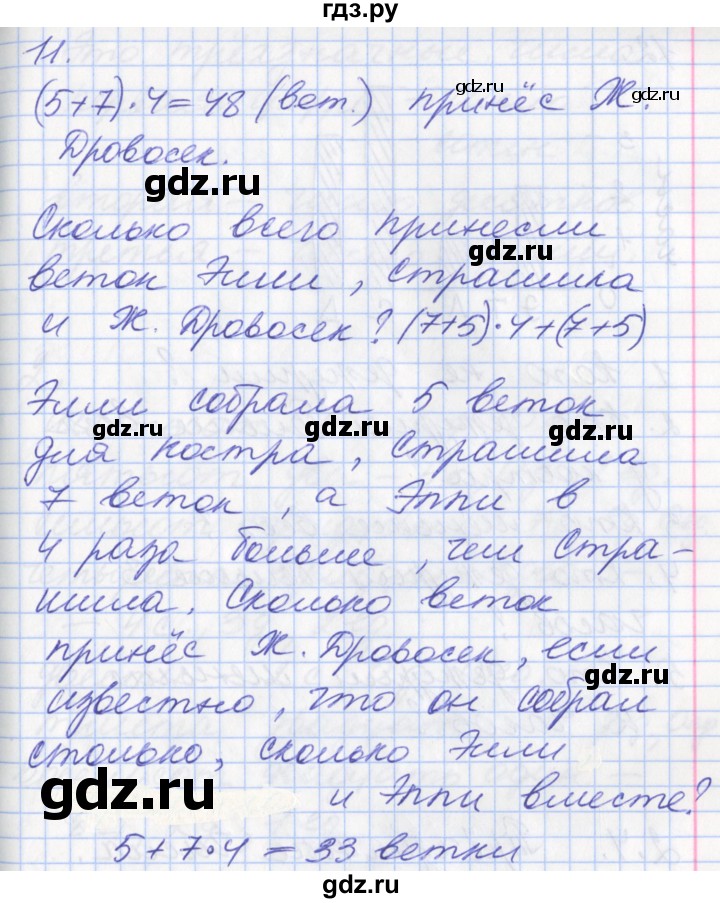 гдз.ру
11.
(5+7)·4=48 (вет.) принёс Ж.
gdz.ru
gdz.ru
Дровосек.
gdz.ru
Сколько всего принесли
gdz.ru
веток Элли, Страшила
и Ж. Дровосек? (7+5)·4+(7+5)
Элли собрала 5 веток
gdz.ru
gdz.ru
gdz.ru
для костра, Страшила
7 веток, а Эппи в
4 раза больше, чем Стра-
шила. Сколько веток
принёс Ж. Дровосек, если
gdz.ru
известно, что он собрал
столько, сколько Элли
gdz.ru
и Эппи вместе?
5+7·4=33 ветки
gdz.ru
gdz.ru
gdz.ru